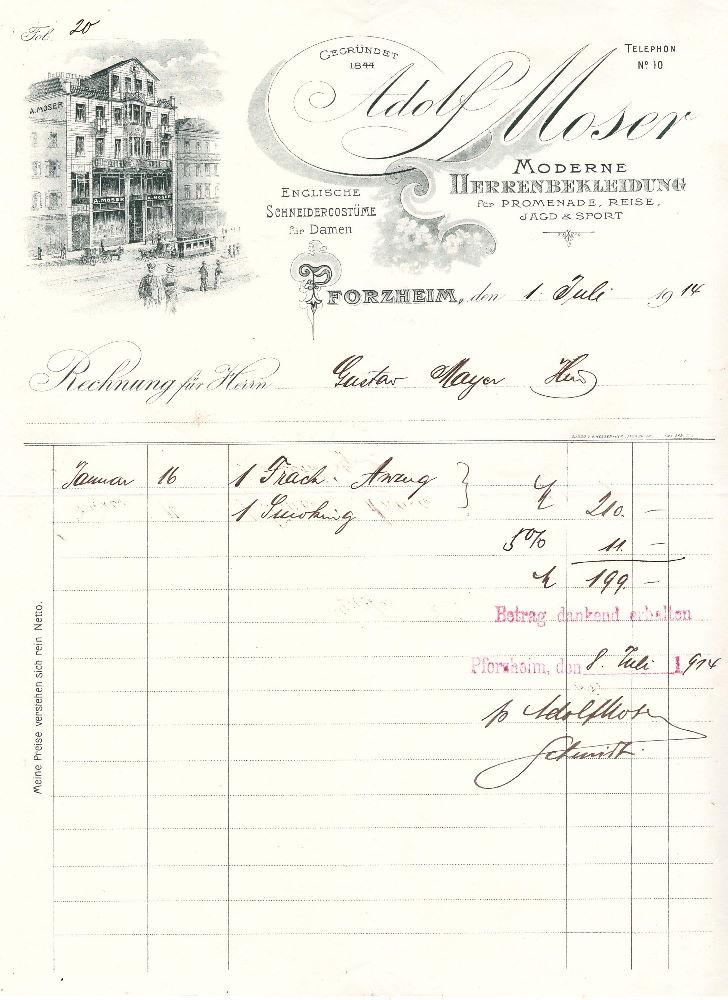 Fol. 20
GEGRÜNDET
1844
TELEPHON
Nº 10
Adolf Moser
A. MOSER
A. MOSER
MODERNE
HERRENBEKLEIDUNG
für PROMENADE, REISE,
JAGD & SPORT
ENGLISCHE
SCHNEIDERCOSTÜME
für Damen
PFORZHEIM, den 1. Juli 1914
Rechnung für Herrn Gustav Mayer
Januar 16 1 Frack-Anzug
1 Smoking M 210. –
5% 11. –
M 199. –
Betrag dankend erhalten
Pforzheim, den 8. Juli 1914
p Adolf Moser
Schmidt
Meine Preise verstehen sich rein Netto.